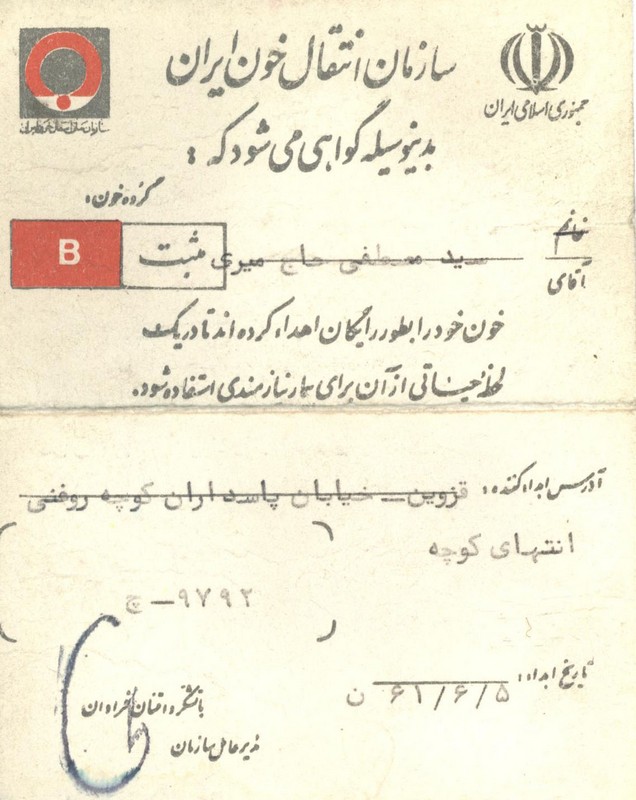 سازمان انتقال خون ایران
جمهوری اسلامی ایران
بدینوسیله گواهی می شود که :
گروه خون:
B
مثبت
خانم
آقای
سید مصطفی حاج میری
خون خود را بطور رایگان اهداء کرده اند تا در یک
لحظه حیاتی از آن برای بیمار نیازمندی استفاده شود.
آدرس اهداء کننده: قزوین_ خیابان پاسداران کوچه روغنی
انتهای کوچه
۹۷۹۲_ج
تاریخ اهداء: ۶۱/۶/۵ ن
با تشکر و امتنان فراوان
مدیر عامل سازمان